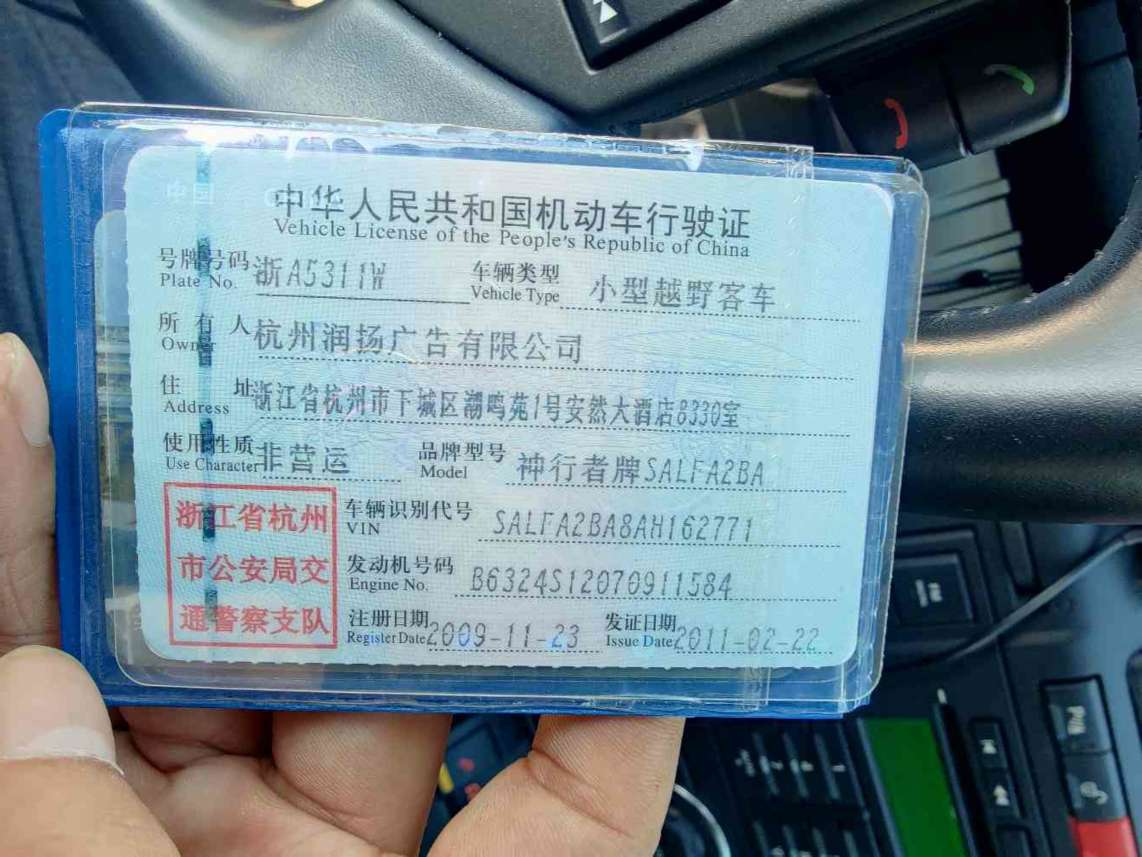 中华人民共和国机动车行驶证
Vehicle License of the People's Republic of China
号牌号码 浙A5311W 车辆类型 小型越野客车
Plate No. Vehicle Type
所有人 杭州润扬广告有限公司
Owner
住址 浙江省杭州市下城区潮鸣苑1号安然大酒店8330室
Address
使用性质 非营运 品牌型号 神行者牌SALFA2BA
Use Character Model
浙江省杭州
市公安局交
通警察支队
车辆识别代号 SALFA2BA8AH162771
VIN
发动机号码 B6324S12070911584
Engine No.
注册日期 2009-11-23 发证日期 2011-02-22
Register Date Issue Date